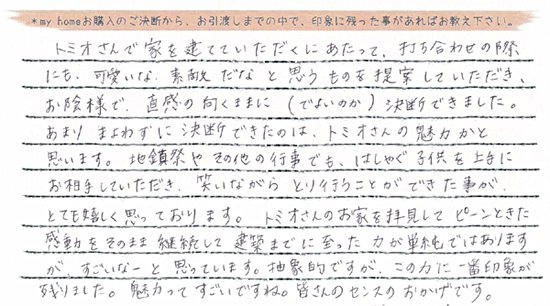 *my homeお購入のご決断から、お引渡しまでの中で、印象に残った事があればお教え下さい。
トミオさんで家を建てていただくにあたって、打ち合わせの際
にも、可愛いな、素敵だなと思うものを提案していただき、
お陰様で、直感の向くままに(でよいのか)決断できました。
あまりまよわずに決断できたのは、トミオさんの魅力かと
思います。地鎮祭やその他の行事でも、はしゃぐ子供を上手に
お相手していただき、笑いながらとり行うことができた事が、
とても嬉しく思っております。トミオさんのお家を拝見してピーンときた
感動をそのまま継続して建築までに至った力が単純ではあります
が、すごいなーと思っています。抽象的ですが、この力に一番印象が
残りました。魅力ってすごいですね。皆さんのセンスのおかげです。